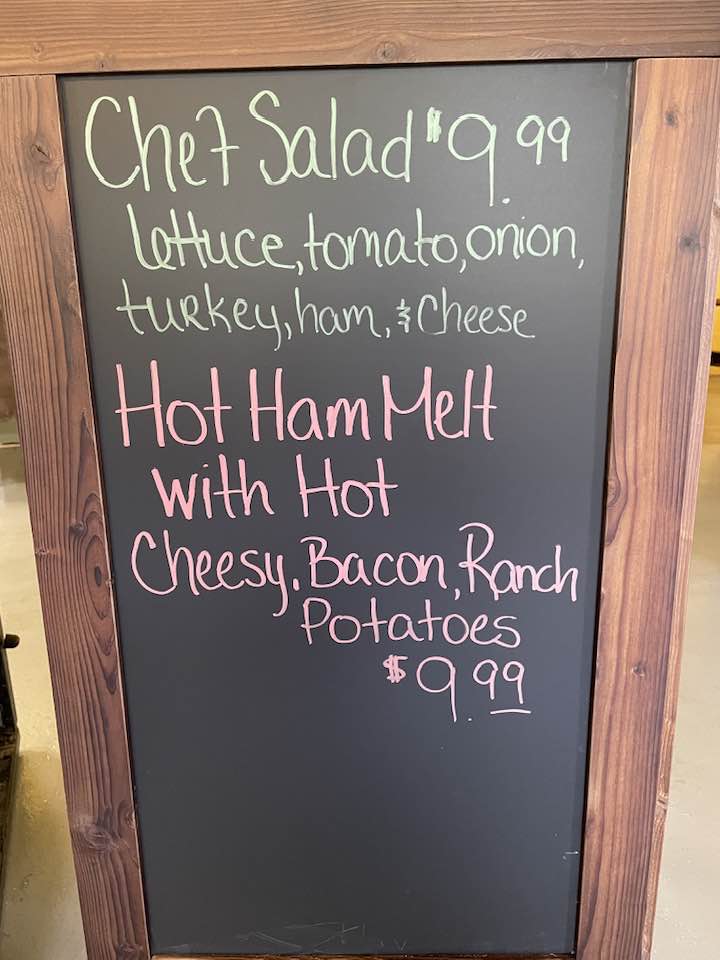 Chef Salad $9.99
lettuce, tomato, onion,
turkey, ham, & Cheese
Hot Ham Melt
with Hot
Cheesy, Bacon, Ranch
Potatoes
$9.99